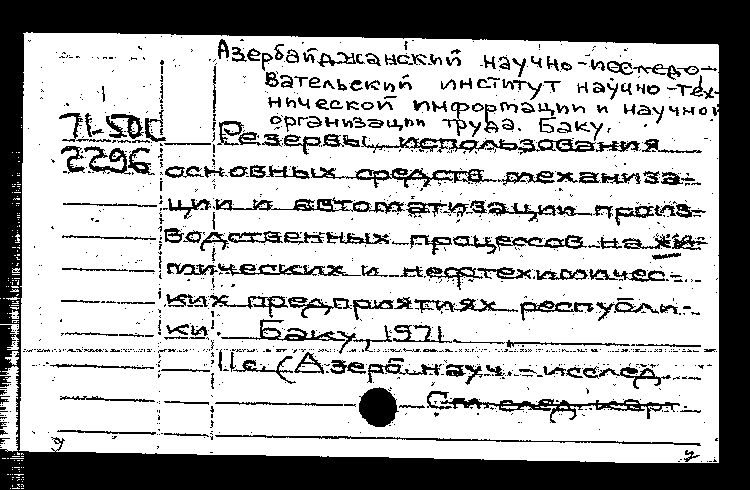 Азербайджанский научно-исследо-
вательский институт научно-тех-
нической информации и научной
организации труда. Баку.
71-50С
2296
Резервы использования
основных средств механиза-
ции и автоматизации произ-
водственных процессов на хи-
мических и нефтехимичес-
ких предприятиях республи-
ки. Баку, 1971.
11с. (Азерб. науч.-исслед.
См. след. карт.
у
у